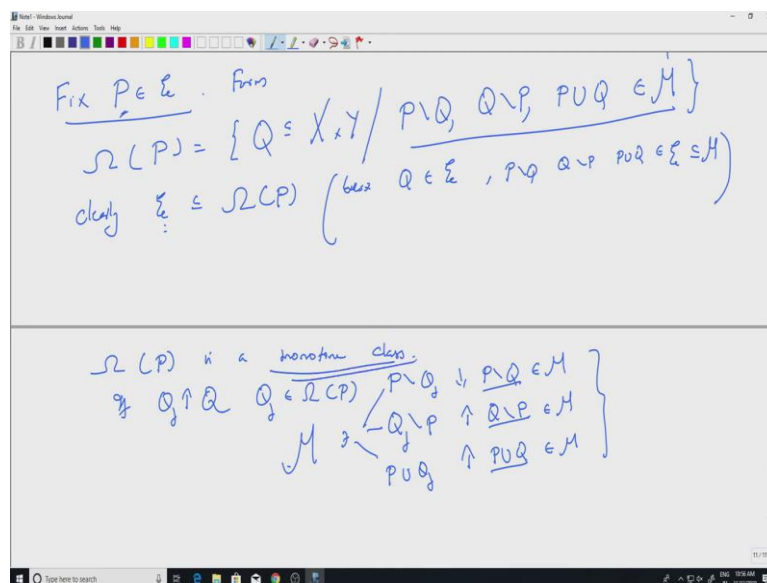 Note1 - Windows Journal
File Edit View Insert Actions Tools Help
Fix P ∈ ξ. Form
Ω(P) = { Q ⊆ X×Y / P\Q, Q\P, P∪Q ∈ M }
clearly ξ ⊆ Ω(P) ( Q ∈ ξ, P\Q Q\P P∪Q ∈ ξ ⊆ M )
Ω(P) is a monotone class.
If Q_j ↑ Q Q_j ∈ Ω(P) P\Q_j ↓ P\Q ∈ M
M ∋ Q_j\P ↑ Q\P ∈ M
P∪Q_j ↑ P∪Q ∈ M
11/11
Type here to search
ENG 10:56 AM